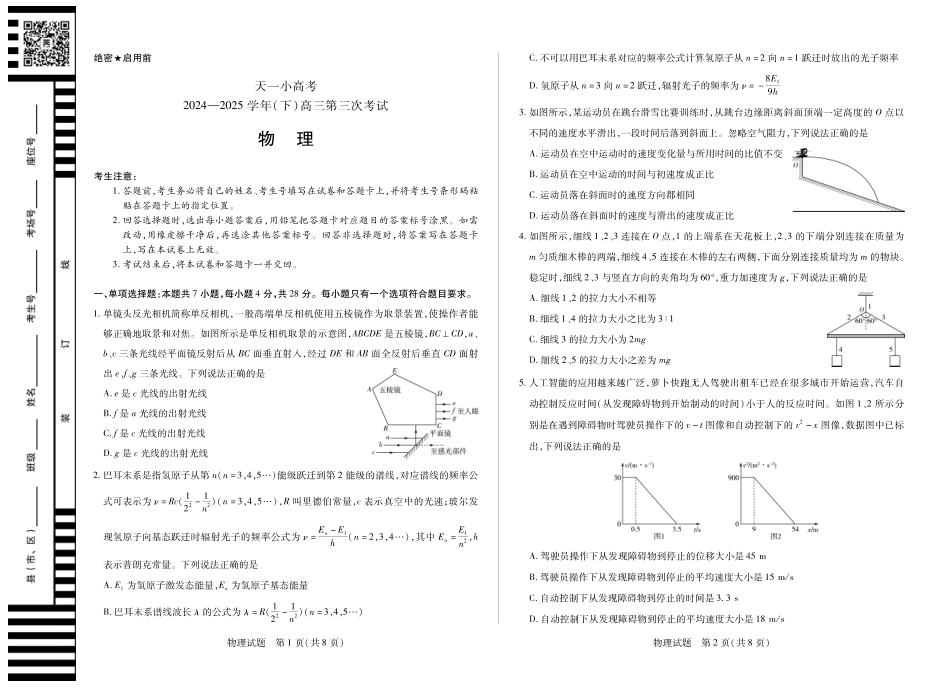 绝密★启用前
天一小高考
2024—2025 学年(下)高三第三次考试
物 理
考生注意:
1. 答题前,考生务必将自己的姓名、考生号填写在试卷和答题卡上,并将考生号条形码粘
贴在答题卡上的指定位置。
2. 回答选择题时,选出每小题答案后,用铅笔把答题卡对应题目的答案标号涂黑。如需
改动,用橡皮擦干净后,再选涂其他答案标号。回答非选择题时,将答案写在答题卡
上,写在本试卷上无效。
3. 考试结束后,将本试卷和答题卡一并交回。
一、单项选择题:本题共 7 小题,每小题 4 分,共 28 分。每小题只有一个选项符合题目要求。
1. 单镜头反光相机简称单反相机,一般高端单反相机使用五棱镜作为取景装置,使操作者能
够正确地取景和对焦。如图所示是单反相机取景的示意图,ABCDE 是五棱镜,BC⊥CD,a、
b、c 三条光线经平面镜反射后从 BC 面垂直射入,经过 DE 和 AB 面全反射后垂直 CD 面射
出 e、f、g 三条光线。下列说法正确的是
A. e 是 c 光线的出射光线
B. f 是 a 光线的出射光线
C. f 是 c 光线的出射光线
D. g 是 c 光线的出射光线
E
A 五棱镜 D
e
f 至人眼
g
B C
平面镜
a
b
c 至感光部件
2. 巴耳末系是指氢原子从第 n(n=3,4,5…)能级跃迁到第 2 能级的谱线,对应谱线的频率公
式可表示为 ν=Rc(1/2²−1/n²)(n=3,4,5…),R 叫里德伯常量,c 表示真空中的光速;玻尔发
现氢原子向基态跃迁时辐射光子的频率公式为 ν=(Eₙ−E₁)/h(n=2,3,4…),其中 Eₙ=E₁/n²,h
表示普朗克常量。下列说法正确的是
A. E₁ 为氢原子激发态能量,Eₙ 为氢原子基态能量
B. 巴耳末系谱线波长 λ 的公式为 λ=R(1/2²−1/n²)(n=3,4,5…)
物理试题 第 1 页(共 8 页)
C. 不可以用巴耳末系对应的频率公式计算氢原子从 n=2 向 n=1 跃迁时放出的光子频率
D. 氢原子从 n=3 向 n=2 跃迁,辐射光子的频率为 ν=−8E₁/9h
3. 如图所示,某运动员在跳台滑雪比赛训练时,从跳台边缘距离斜面顶端一定高度的 O 点以
不同的速度水平滑出,一段时间后落到斜面上。忽略空气阻力,下列说法正确的是
A. 运动员在空中运动时的速度变化量与所用时间的比值不变
B. 运动员在空中运动的时间与初速度成正比
C. 运动员落在斜面时的速度方向都相同
D. 运动员落在斜面时的速度与滑出的速度成正比
O
4. 如图所示,细线 1、2、3 连接在 O 点,1 的上端系在天花板上,2、3 的下端分别连接在质量为
m 匀质细木棒的两端,细线 4、5 连接在木棒的左右两侧,下面分别连接质量均为 m 的物块。
稳定时,细线 2、3 与竖直方向的夹角均为 60°,重力加速度为 g,下列说法正确的是
A. 细线 1、2 的拉力大小不相等
B. 细线 1、4 的拉力大小之比为 3∶1
C. 细线 3 的拉力大小为 2mg
D. 细线 2、5 的拉力大小之差为 mg
O 1
2 60° 60° 3
4 5
5. 人工智能的应用越来越广泛,萝卜快跑无人驾驶出租车已经在很多城市开始运营,汽车自
动控制反应时间(从发现障碍物到开始制动的时间)小于人的反应时间。如图 1、2 所示分
别是在遇到障碍物时驾驶员操作下的 v−t 图像和自动控制下的 v²−x 图像,数据图中已标
出,下列说法正确的是
v/(m·s⁻¹)
30
0 0.5 3.5 t/s
图1
v²/(m²·s⁻²)
900
0 9 54 x/m
图2
A. 驾驶员操作下从发现障碍物到停止的位移大小是 45 m
B. 驾驶员操作下从发现障碍物到停止的平均速度大小是 15 m/s
C. 自动控制下从发现障碍物到停止的时间是 3.3 s
D. 自动控制下从发现障碍物到停止的平均速度大小是 18 m/s
物理试题 第 2 页(共 8 页)
县(市、区) 班级 姓名 考生号 考场号 座位号
装 订 线